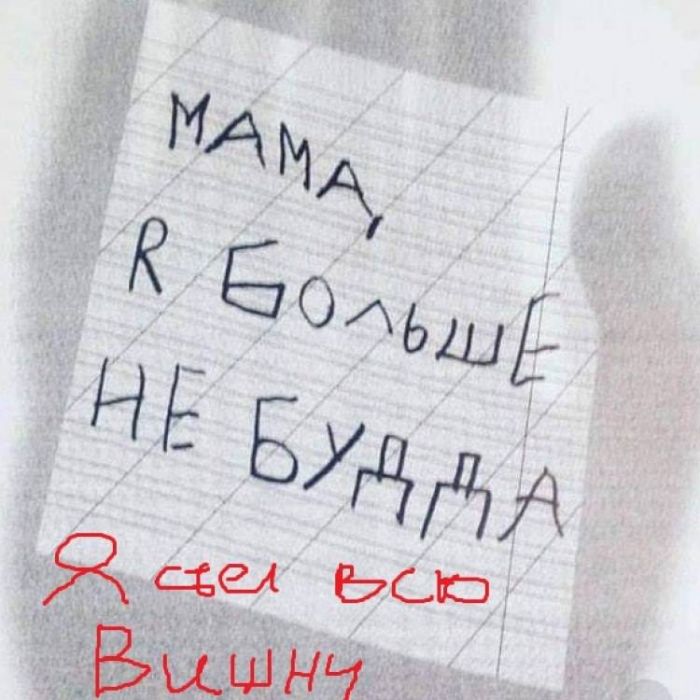 МАМА,
R БОЛЬШЕ
НЕ БУДДА
Я сьел всю
Вишну